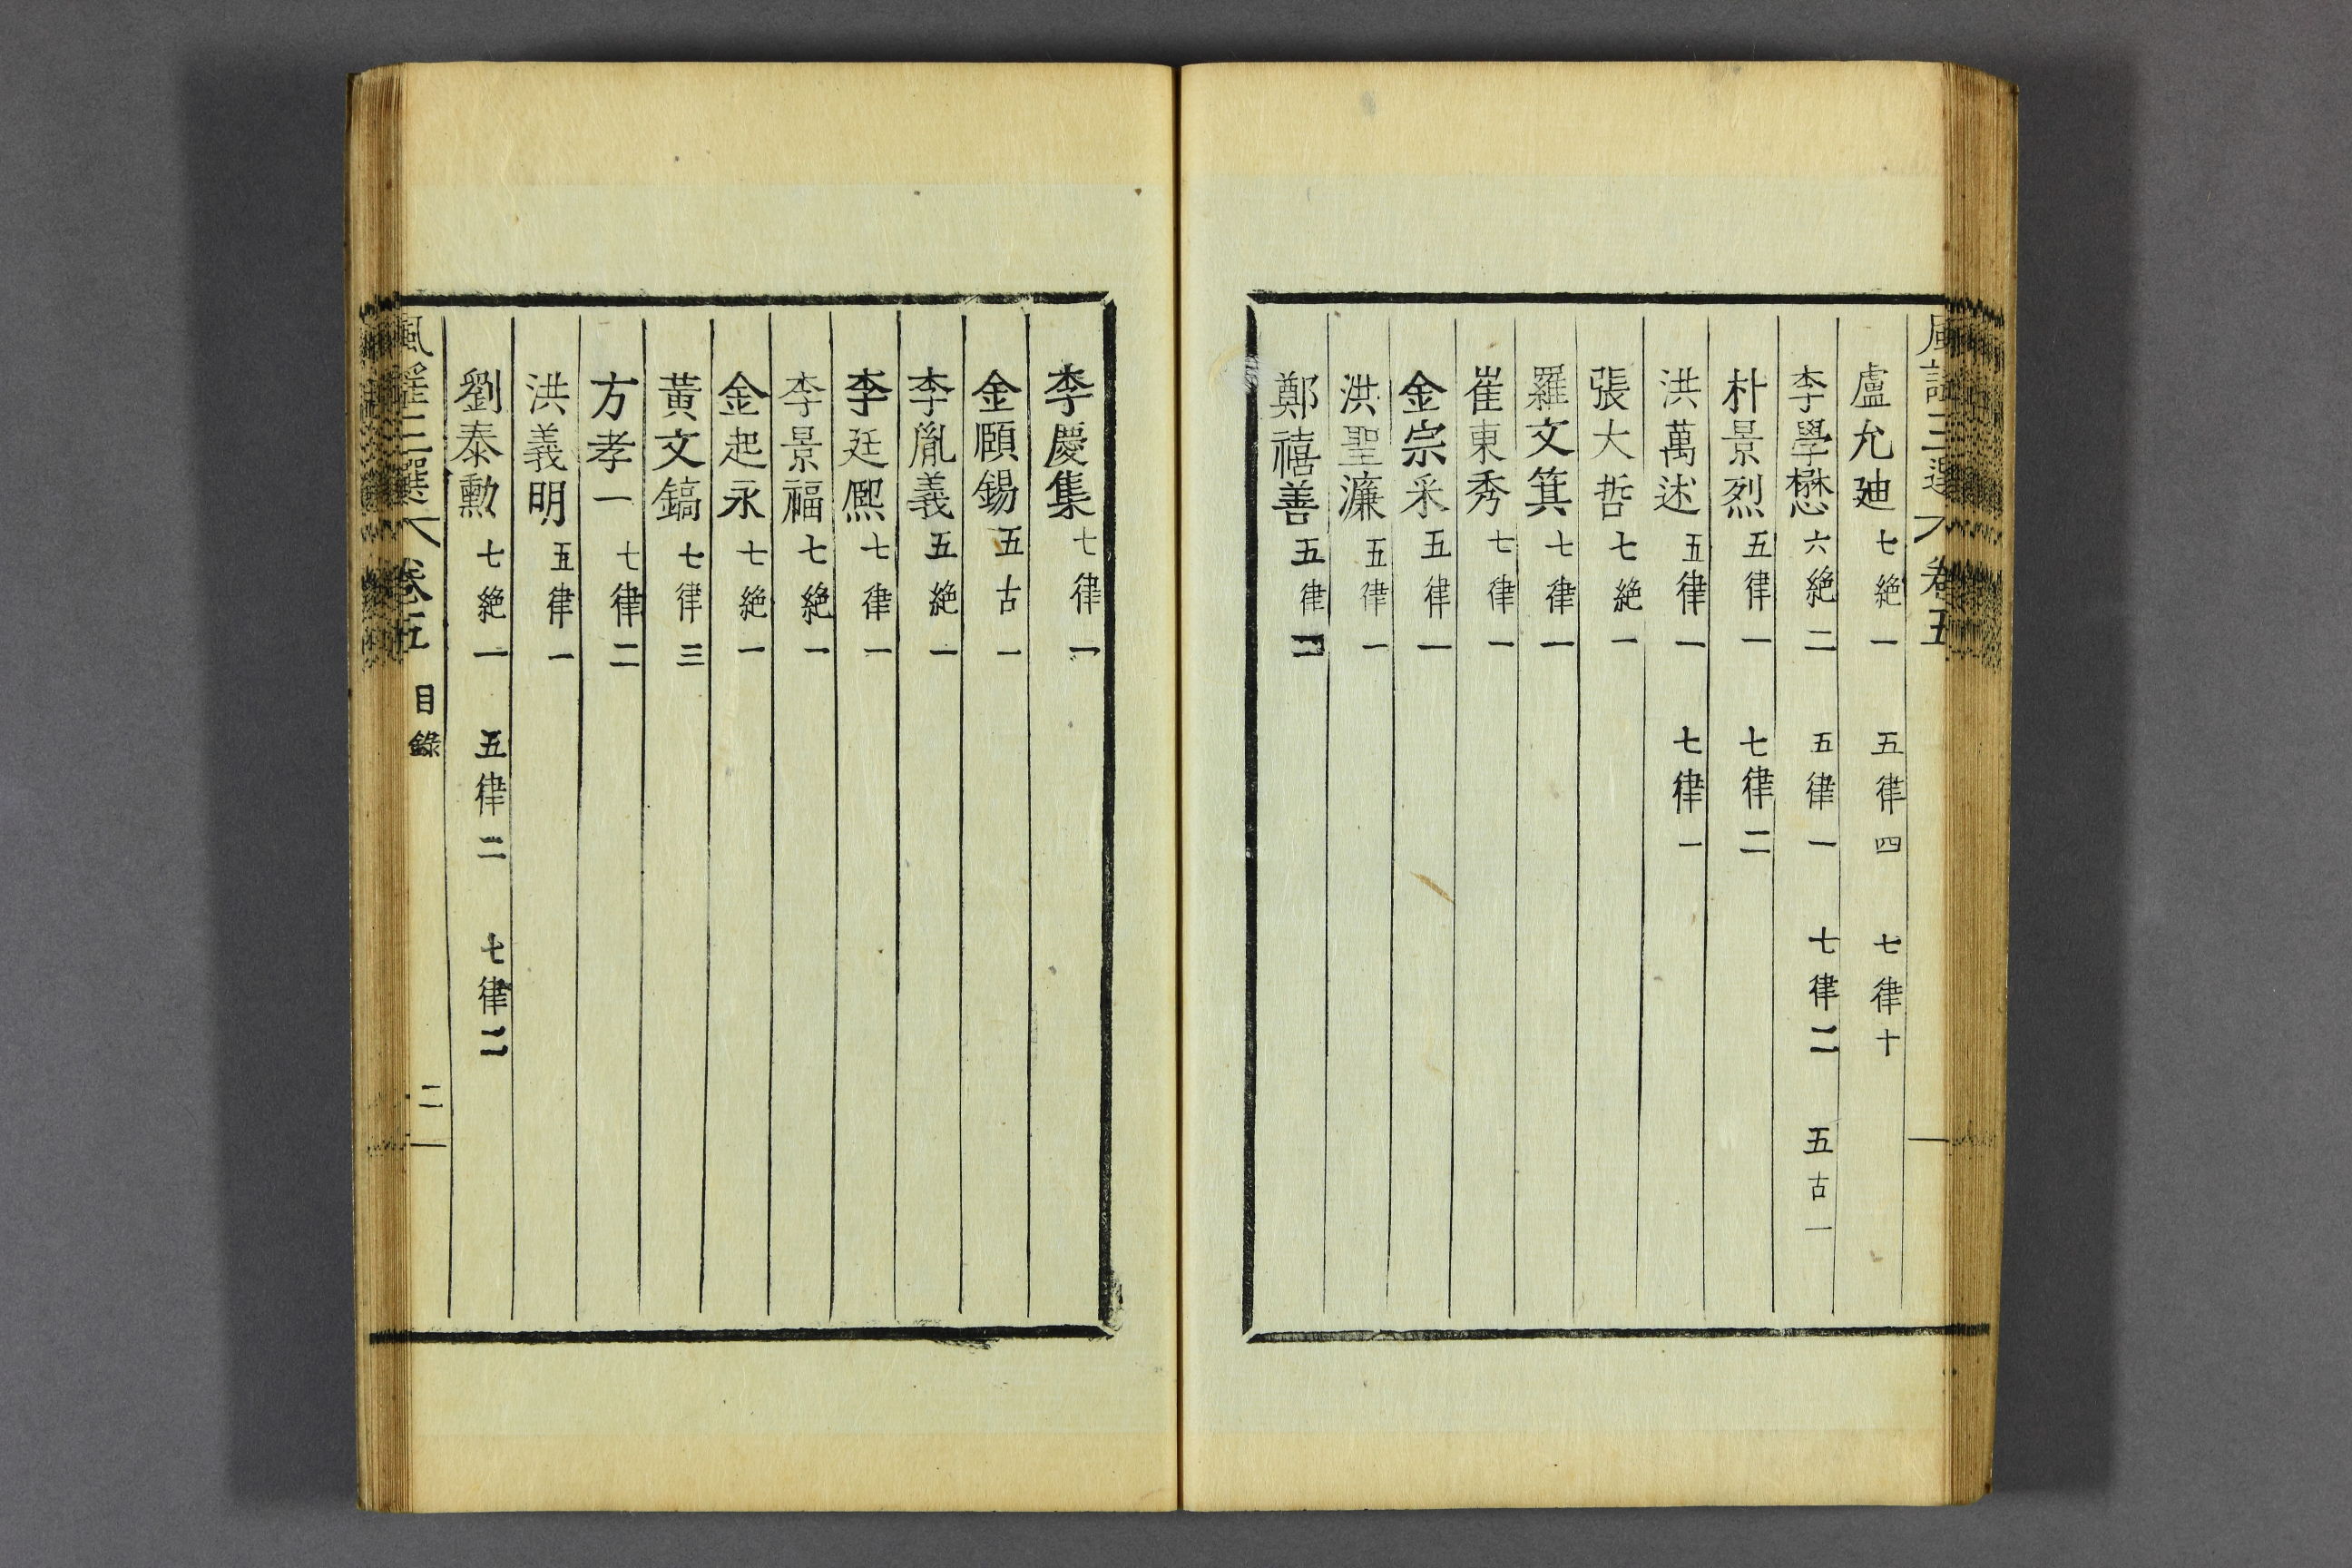 盧允迪 七絶一 五律四 七律十
李學懋 六絶二 五律一 七律二 五古一
朴景烈 五律一 七律二
洪萬迖 五律一 七律一
張大哲 七絶一
羅文箕 七律一
崔東秀 七律一
金宗釆 五律一
洪聖濂 五律一
鄭禧善 五律二
李慶集 七律一
金頤錫 五古一
李胤義 五絶一
李廷熙 七律一
李景福 七絶一
金起永 七絶一
黃文鎬 七律三
方孝一 七律二
洪義明 五律一
劉泰勳 七絶一 五律二 七律二
風謠三選 卷五 目錄 二